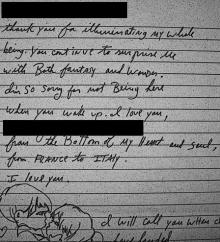 thank you for illuminating my whole
being. you continue to surprise me
with Both fantasy and wonder.
I'm so sorry for not Being here
when you wake up. I love you,
from the Bottom of my Heart and soul,
from FRANCE to ITALY.
I love you.
I will call you when
have landed